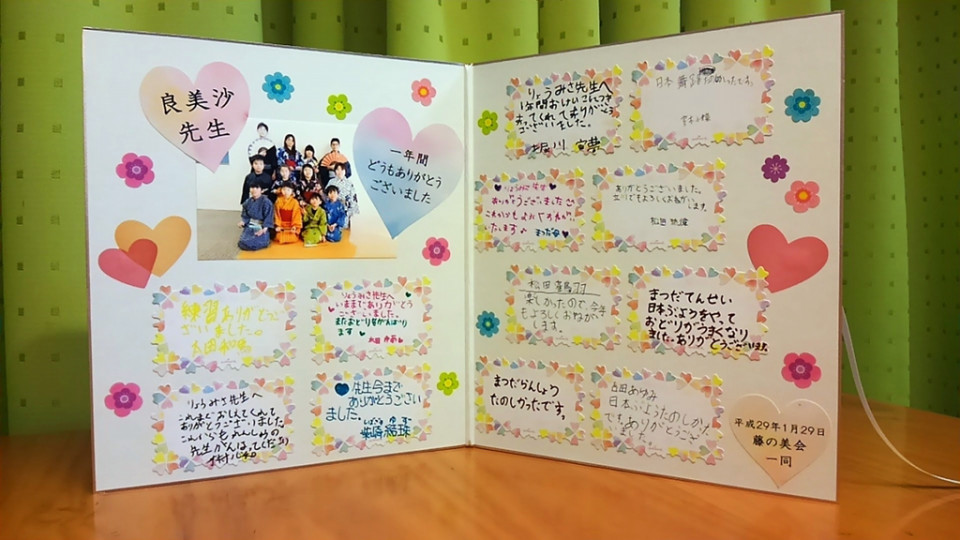 良美沙
先生
一年間
どうもありがとう
ございました
練習ありがとうご
ざいました。
りょうみさ先生へ
いままでありがとう
ございました。
またおどりをがんばり
ます
りょうみさ先生へ
これまでおしえてくれて
ありがとうございました
これからもれんしゅうの
先生がんばってください
先生今まで
ありがとうござい
ました。
りょうみさ先生へ
1年間おけいこをつけ
てくれてありがとう
ございました。
日本
ありがとうございました。
ありがとうございました
これからも
いたします
よろしくおねがい
します。
松田
楽しかったので今年
もよろしくおねがい
します。
まつだてんせい
日本ぶようをやって
おどりがうまくなり
ました。ありがとうございます。
まつだらんしょう
たのしかったです。
占田あゆみ
日本ぶようたのしかった
でもありがとうござい
ました。
平成29年1月29日
藤の美会
一同